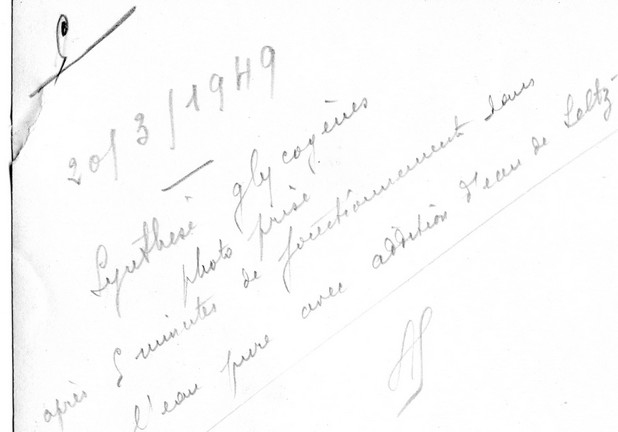 20/3/1949
Synthèse glycogènes
photo prise
après 5 minutes de fonctionnement dans
l'eau pure avec addition d'eau de Seltz